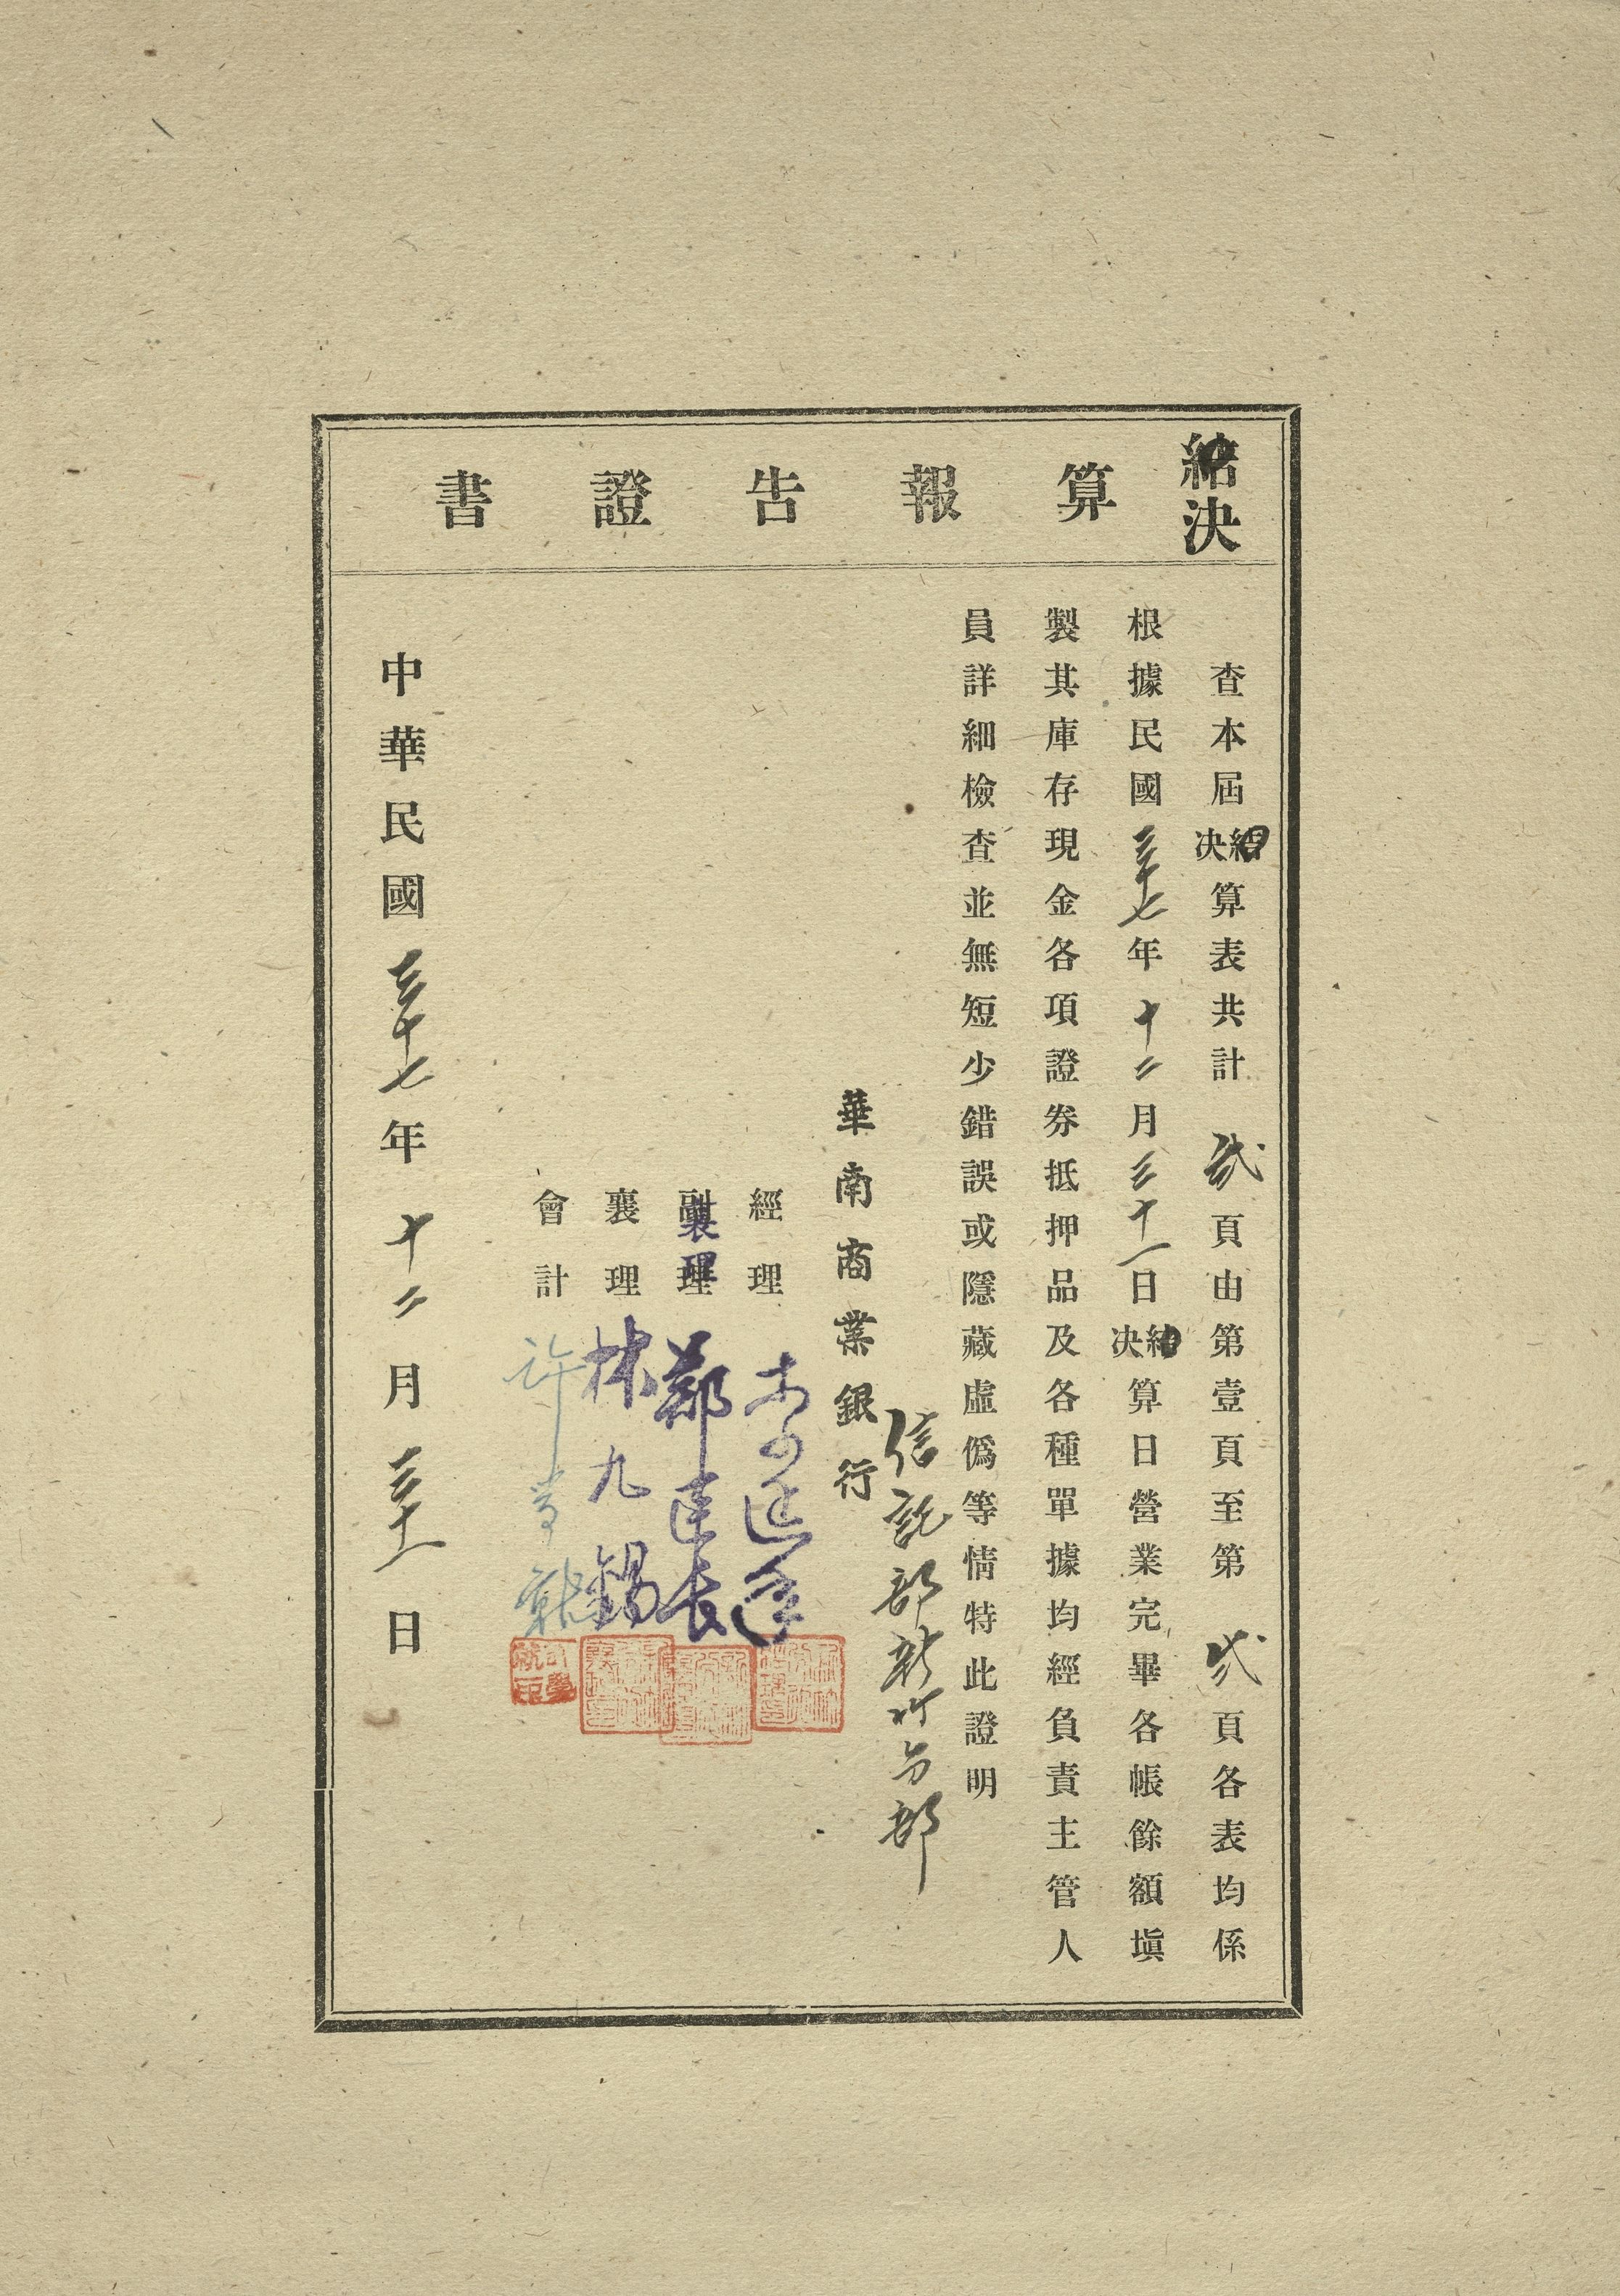 決算報告證書
查本屆決算表共計弍頁由第壹頁至第弍頁各表均係
根據民國三十七年十二月三十一日決算日營業完畢各帳餘額塡
製其庫存現金各項證券抵押品及各種單據均經負責主管人
員詳細檢查並無短少錯誤或隱藏虛僞等情特此證明
信託部新竹分部
華南商業銀行
經理
襄理 鄭長
襄理 林九錫
會計 許
中華民國三十七年十二月三十一日